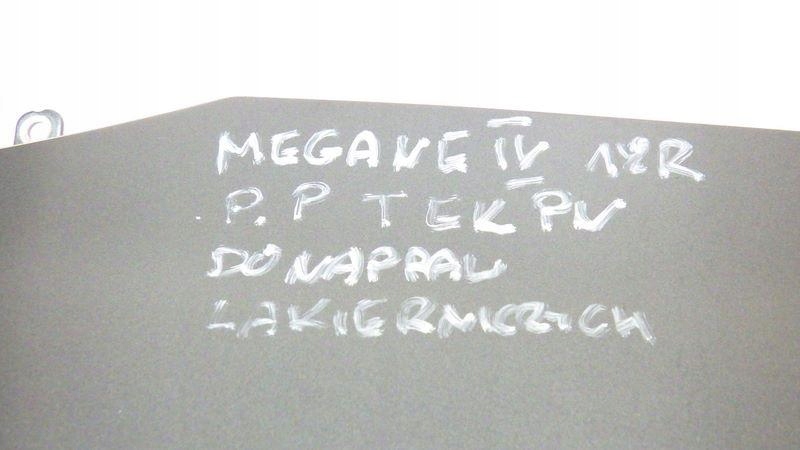 MEGANE IV 18R
P.P TEK PV
DO NAPRAW
LAKIERNICZYCH